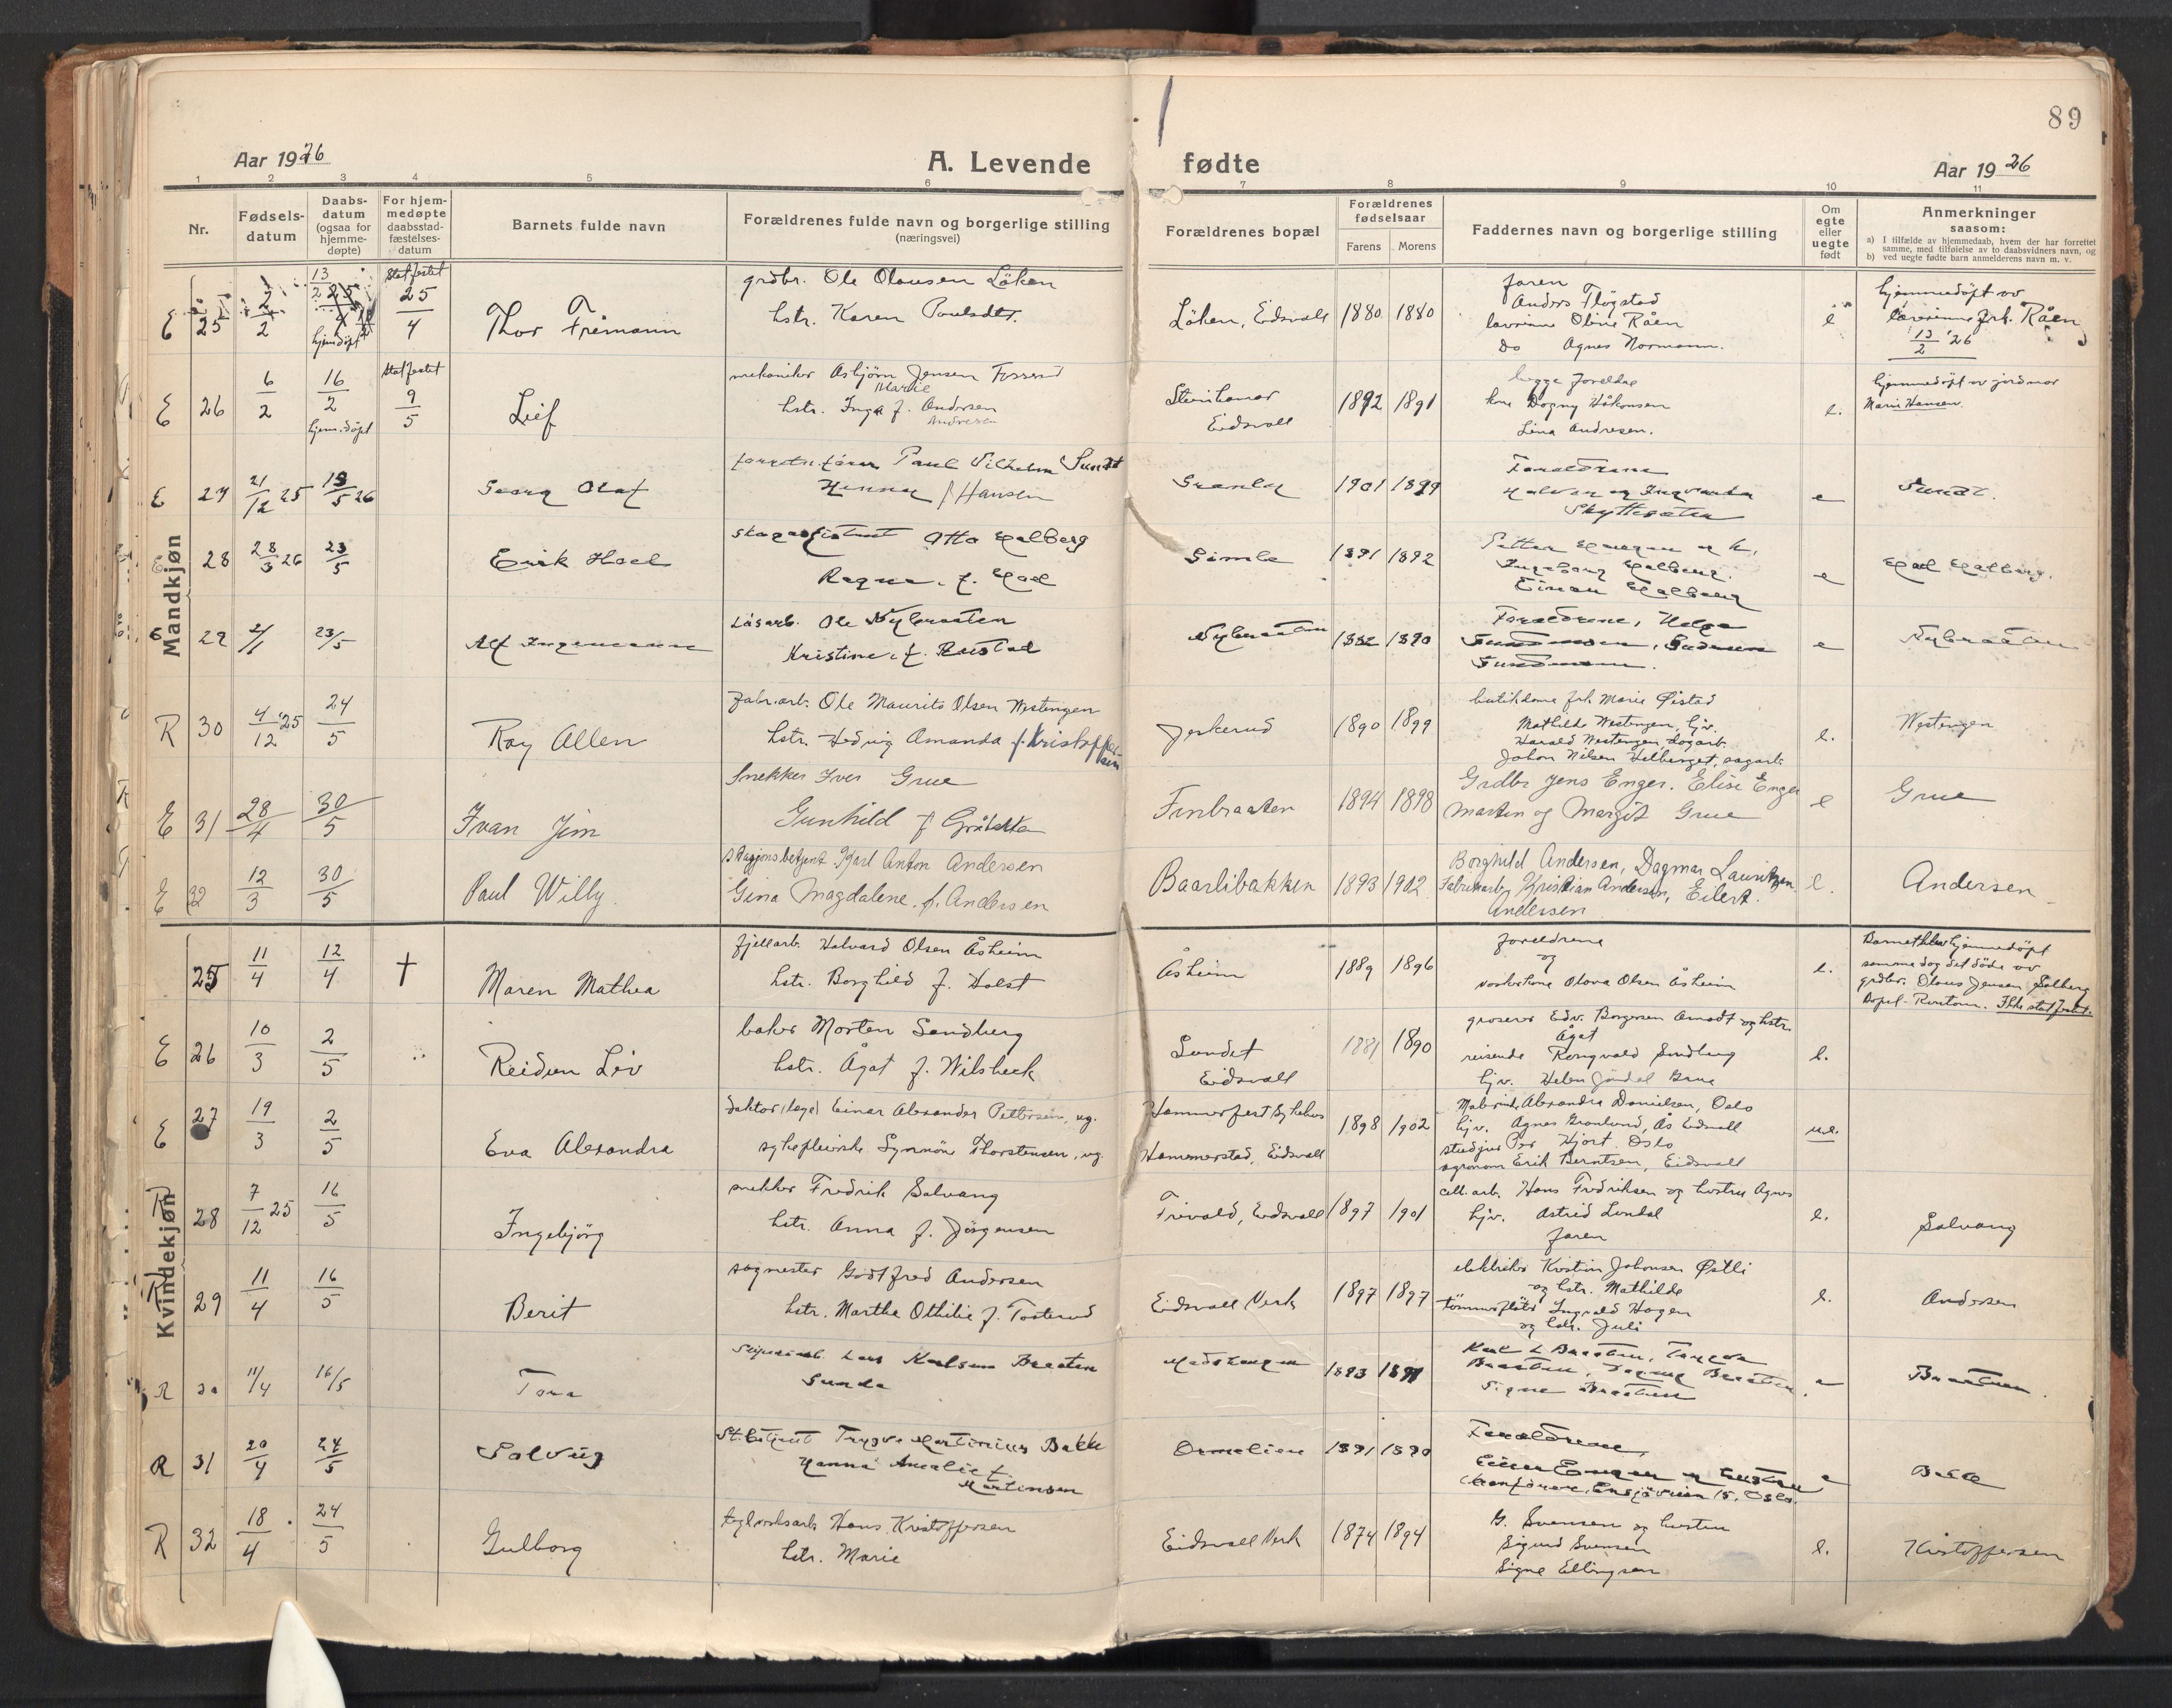 89
Aar 1926
A. Levende fødte
Aar 1926
1 2 3 4 5 6 7 8 9 10 11
Nr.
Fødsels-
datum
Daabs-
datum
(ogsaa for
hjemme-
døpte)
For hjem-
medøpte
daabsstad-
fæstelses-
datum
Barnets fulde navn
Forældrenes fulde navn og borgerlige stilling
(næringsvei)
Forældrenes bopæl
Forældrenes
fødselsaar
Farens Morens
Faddernes navn og borgerlige stilling
Om
egte
eller
uegte
født
Anmerkninger
saasom:
a) I tilfælde av hjemmedaab, hvem der har forrettet
samme, med tilføielse av to daabsvidners navn, og
b) ved uegte fødte barn anmelderens navn m. v.
Mandkjøn
E 25 2/2 hjemdöpt Statfestet 25/4
Thor Fremann
grdbr. Ole Olausen Löken
hstr. Karen Paulsdtr.
Löken, Eidsvoll 1880 1880
faren
Anders Fløgstad
lærerinne Oline Råen
Do Agnes Normann.
e
hjemmedöpt av
lærerinne frk. Råen
13/2 '26
E 26 6/2 16/2 hjem.döpt Statfestet 9/5
Leif
mekaniker Asbjörn Jensen
Marie
hstr. Inga f. Andersen
Andresen
Eidsvoll 1892 1891
begge foreldre
kone Dagny Håkonsen
Lina Andresen.
e.
hjemmedöpt av jordmor
Marie Hansen.
E 27 21/12 25 13/5 26
Georg Olaf
Paul Vilhelm Sundt
Henny f Hansen
Granly 1901 1899
Foraeldrene
e
Sundt.
E 28 28/3 26 23/5
Erik Hoel
skogassistent Otto Halberg
Ragna. f. Hoel
Gimle 1891 1892
Ingeborg Halberg.
Einar Halberg
e
Hoel Halberg.
E 29 2/1 23/5
Alf Ingemann
Ole Nybraaten
Kristine. f. Rustad
Nybraaten 1882 1890
Foraeldrene, Helge
e
Nybraaten
R 30 4/12 '25 24/5
Roy Allen
fabr.arb. Ole Maurits Olsen Westengen
hstr. Hedvig Amanda f. Kristoffer-
sen
Jerkerud 1890 1899
butikdame frk. Marie Øistad
Mathilde Westengen, hjv.
Harald Westengen, dagarb.
Johan Nilsen Helberget, sagarb.
e.
Westengen
E 31 28/4 30/5
Ivan Jim
Snekker Iver Grue
Gunhild f
Finbraaten 1894 1898
Grdbr Jens Enger. Elise Enger
Martin og Margit Grue
e
Grue
E 32 12/3 30/5
Paul Willy.
Stasjonsbetjent Karl Anton Andersen
Gina Magdalene. f. Andersen
Baarlibakken 1893 1902
Borghild Andersen, Dagmar Lauritzen.
Fabrikarb. Kristian Andersen, Eilert.
Andersen
e.
Andersen
Kvindekjøn
25 11/4 12/4 †
Maren Mathea
fjellarb. Halvard Olsen Åsheim
hstr. Borghild f. Holst
Åsheim 1889 1896
foreldrene
og
Olava Olsen Åsheim
e.
Barnet blev hjemmedöpt
samme dag det döde av
grdbr. Olaus Jensen Solberg
Ikke statfestet.
E 26 10/3 2/5
Reidun Liv
baker Morten Sandberg
hstr. Ågot f. Wilsbeck
Sundet
Eidsvoll 1881 1890
groserer Edv. Borgersen Amodt og hstr.
Ågot
reisende Rongvald Sandberg
hjv. Helen Grue
e.
E 27 19/3 2/5
Eva Alexandra
doktor (lege) Einar Alexander Pettersen, ug.
sykepleierske Synnöve Thorstensen, ug.
Hammerfest Sykehus
Hammerstad, Eidsvoll 1898 1902
Alexandra Danielsen, Oslo
hjv. Agnes Grønlund, Ås Eidsvoll
stud.jur Per Hjort Oslo
agronom Erik Berntsen, Eidsvoll
u.e.
R 28 7/12 25 16/5
Ingebjörg
snekker Fredrik Solvang
hstr. Anna f. Jörgensen
Trivold, Eidsvoll 1897 1901
cell.arb. Hans Fredriksen og hustru Agnes
hjv. Astrid Lundal
faren
e.
Solvang
R 29 11/4 16/5
Berit
sagmester Godtfred Andersen
hstr. Marthe Othilie f. Tosterud
Eidsvoll Verk 1897 1897
elektriker Kristin Johansen Østli
og hstr. Mathilde
tömmerfløter Ingvald Hagen
og hstr. Juli
e.
Andersen
R 30 11/4 16/5
Tora
Lars Karlsen Braaten
Gunda
1893 1891
Karl L Braaten,
Braaten, Dagny Braaten,
Signe Braaten
e
Braaten.
R 31 20/4 24/5
Solveig
St.betjent Trygve Martinius Bakke
Hanna Amalie f.
Martinsen
Ormelien 1891 1890
Foraeldrene,
Oslo.
e
Bakke
R 32 18/4 24/5
Gulborg
teglverksarb Hans Kristoffersen
hstr. Marie
Eidsvoll Verk 1874 1894
G. Svensen og hustru
Sigurd Svensen
Signe Ellingsen
e.
Kristoffersen